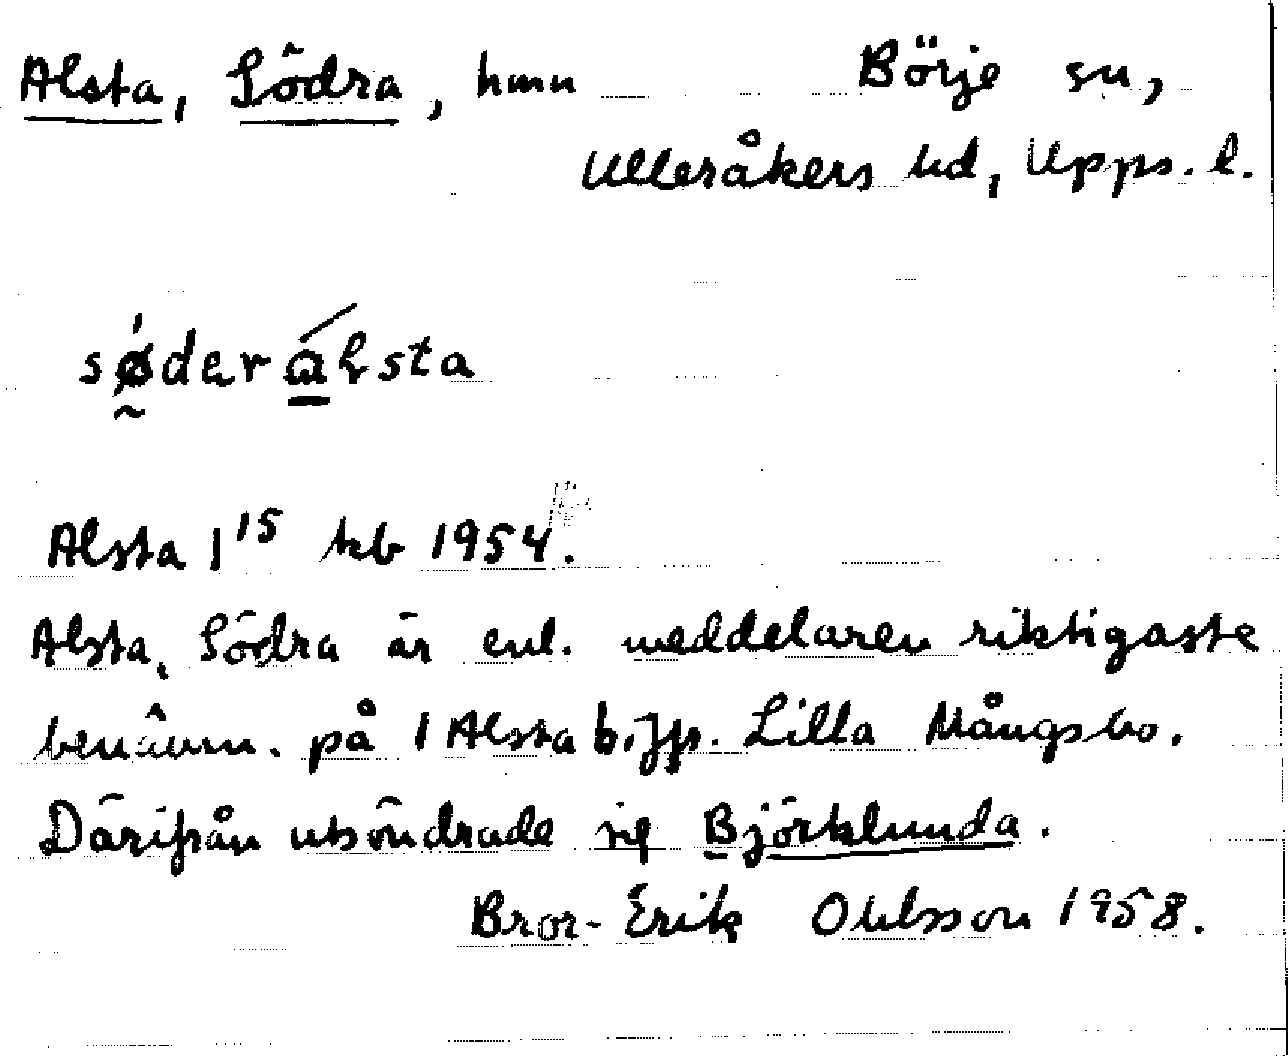 Alsta, Södra, hmn Börje sn,
Ulleråkers hd, Upps. l.
sǿ̰derá̲lsta
Alsta 1¹⁵ jkb 1954.
Alsta, Södra är enl. meddelaren riktigaste
benämn. på 1 Alsta b. Jfr. Lilla Mångsbo.
Därifrån utsöndrade sig Björklunda.
Bror-Erik Ohlsson 1958.